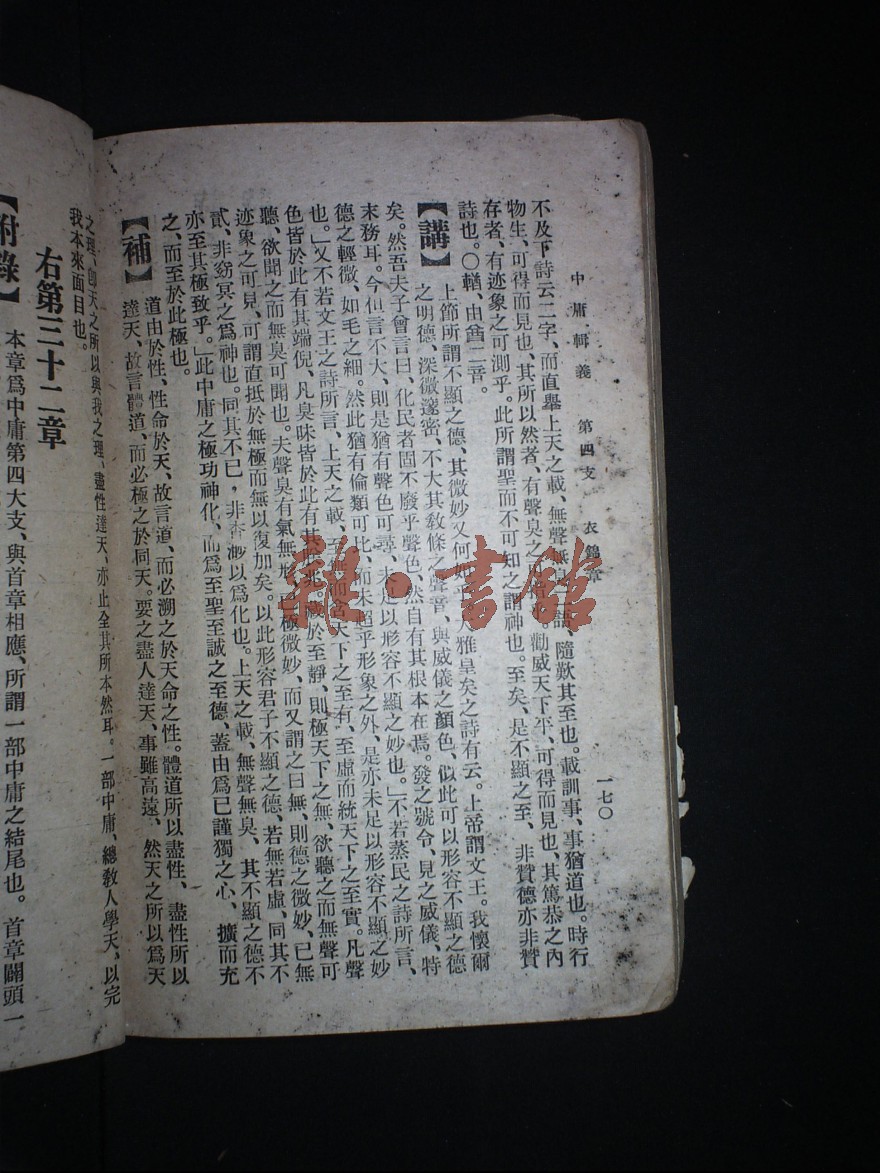 中庸輯義　第四支　衣錦章　一七〇
不及下詩云二字、而直舉上天之載、無聲無語、隨歎其至也。載訓事、事猶道也。時行
物生、可得而見也、其所以然者、有聲臭之勸威天下平、可得而見也、其篤恭之內
存者、有迹象之可測乎。此所謂聖而不可知之謂神也。至矣、是不顯之至、非贊德亦非贊
詩也。〇輶、由酋二音。
【講】上節所謂不顯之德、其微妙又何如乎、大雅皇矣之詩有云。上帝謂文王。我懷爾
之明德、深微邃密、不大其敎條之聲音、與威儀之顏色、似此可以形容不顯之德
矣。然吾夫子曾言曰、化民者固不廢乎聲色、然自有其根本在焉。發之號令、見之威儀、特
末務耳。今但言不大、則是猶有聲色可尋、未足以形容不顯之妙也。」不若蒸民之詩所言、
德之輕微、如毛之細。然此猶有倫類可比、而未超乎形象之外、是亦未足以形容不顯之妙
也。」又不若文王之詩所言、上天之載、至無而含天下之至有、至虛而統天下之至實。凡聲
色皆於此有其端倪、凡臭味皆於此有其藏於至靜、則極天下之無、欲聽之而無聲可
聽、欲聞之而無臭可聞也。夫聲臭有氣無形、已極微妙、而又謂之曰無、則德之微妙、已無
迹象之可見、可謂直抵於無極而無以復加矣。以此形容君子不顯之德、若無若虛、同其不
貳、非窈冥之爲神也。同其不已、非杳渺以爲化也。上天之載、無聲無臭、其不顯之德不
亦至其極致乎。」此中庸之極功神化、而爲至聖至誠之至德、蓋由爲已謹獨之心、擴而充
之、而至於此極也。
【補】道由於性、性命於天、故言道、而必溯之於天命之性。體道所以盡性、盡性所以
達天、故言體道、而必極之於同天。要之盡人達天、事雖高遠、然天之所以爲天
之理、卽天之所以與我之理、盡性達天、亦止全其所本然耳。一部中庸、總敎人學天、以完
我本來面目也。
右第三十二章
【附錄】本章爲中庸第四大支、與首章相應、所謂一部中庸之結尾也。首章闢頭一
雜·書館